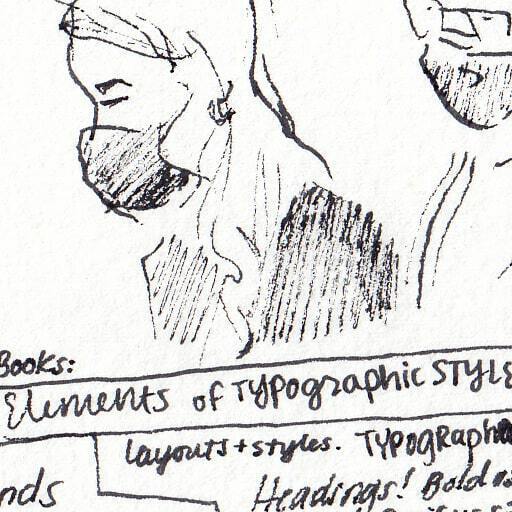 Books:
Elements of Typographic STYLE
layouts + styles. Typography
nds Headings! Bold